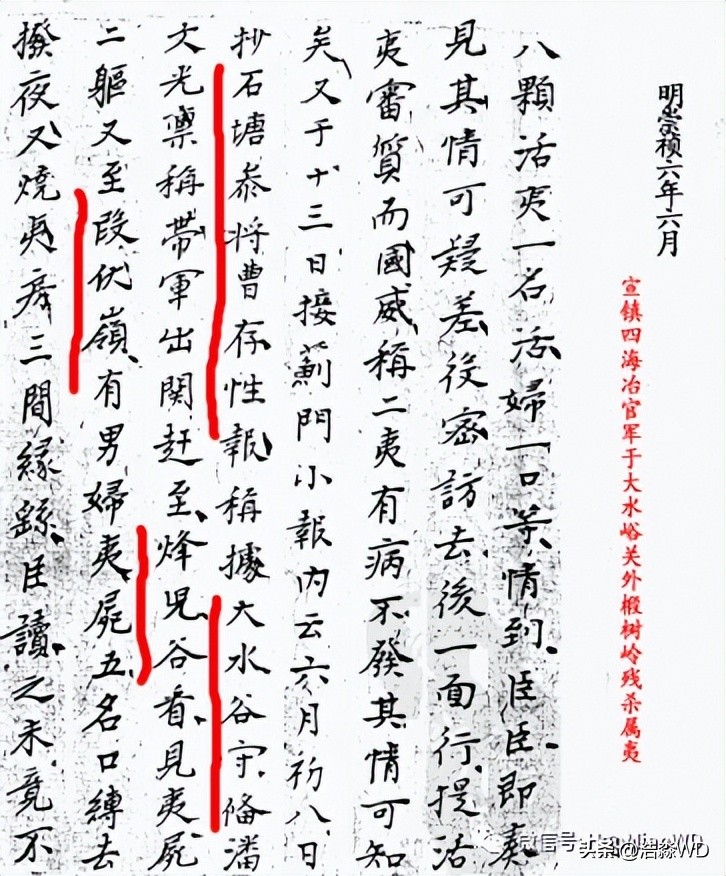 明崇祯六年六月
宣镇四海冶官军于大水峪关外椴树岭残杀属夷
八顆活夷一名活婦一口等情到臣臣即奏
見其情可疑差役密訪去後一面行提活
夷審質而國威稱二夷有病不發其情可知
矣又于十三日接薊門小報内云六月初八日
抄石塘叅将曹存性報稱據大水谷守俻潘
大光禀稱帶軍出関赶至烽児谷看見夷屍
二軀又至段伏嶺有男婦夷屍五名口縛去
撥夜又燒夷房三間緣繇臣讀之未竟不
微信号: HaoMiaoWD
头条@浩淼WD